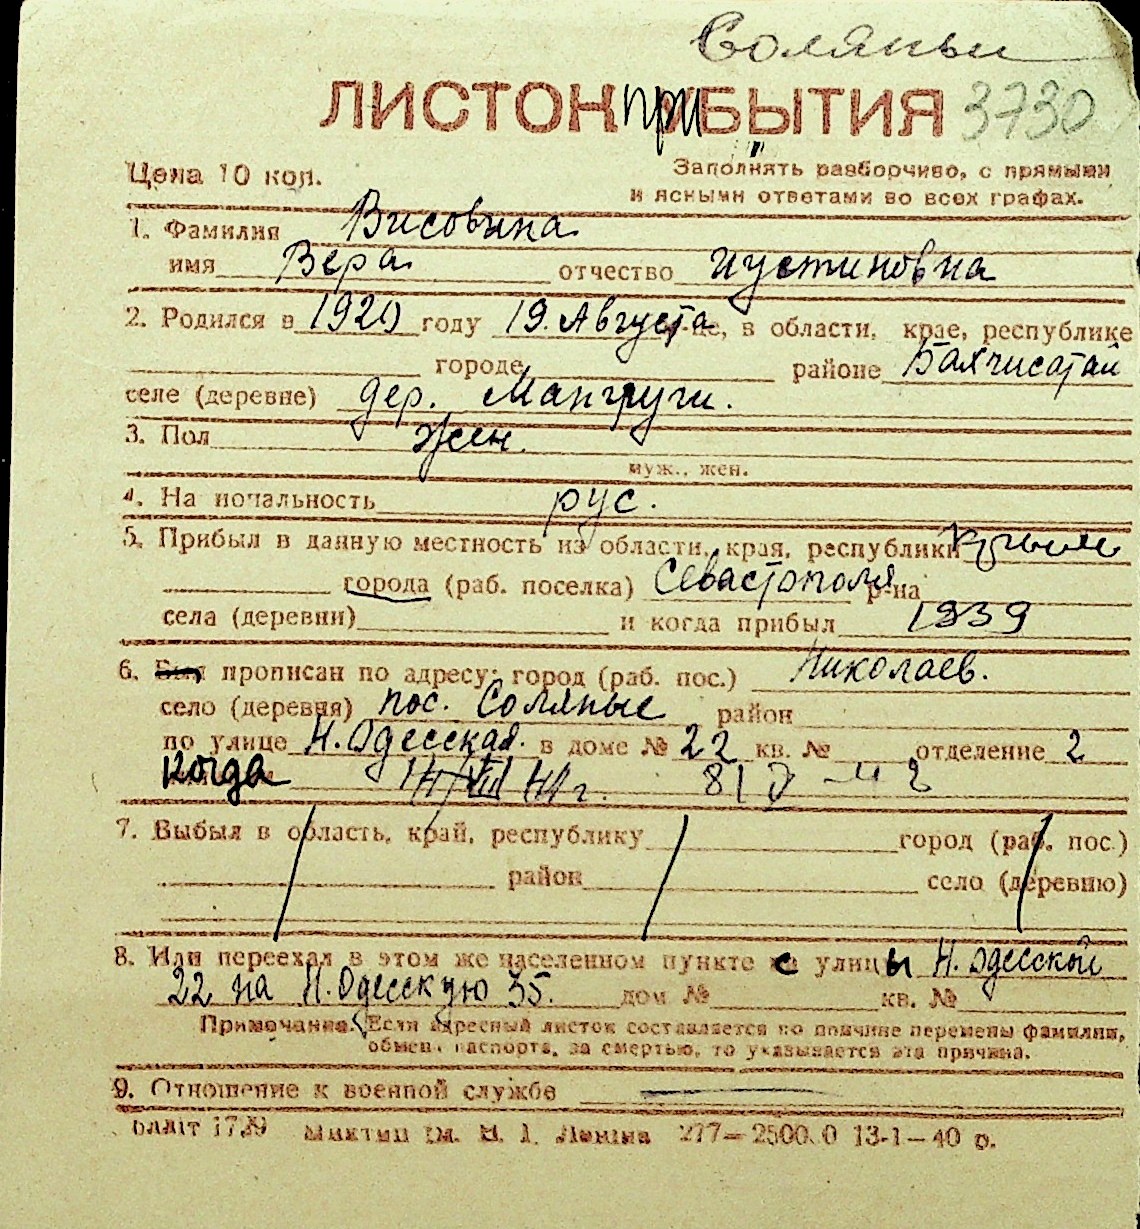 Соляны
ЛИСТОК ПРИБЫТИЯ 3730
Цена 10 коп. Заполнять разборчиво, с прямыми
и ясными ответами во всех графах.
1. Фамилия Висовина
имя Вера отчество Иустиновна
2. Родился в 1920 году 19. Августа, в области, крае, республике
городе районе Бахчисатай
селе (деревне) дер. Мангруги.
3. Пол Жен.
муж., жен.
4. Национальность рус.
5. Прибыл в данную местность из области, края, республики Крыма
города (раб. поселка) Севастополя р-на
села (деревни) и когда прибыл 1939
6. Был прописан по адресу: город (раб. пос.) Николаев.
село (деревня) пос. Соляные район
по улице Н. Одесская. в доме № 22 кв. № отделение 2
когда 14/VIII 41 г.
7. Выбыл в область, край, республику город (раб. пос.)
район село (деревню)
8. Или переехал в этом же населенном пункте с улицы Н. Одесской
22 на Н. Одесскую 35. дом № кв. №
Примечание. Если адресный листок составляется по причине перемены фамилии,
обмена паспорта, за смертью, то указывается эта причина.
9. Отношение к военной службе
277—2500.0 13-1—40 р.